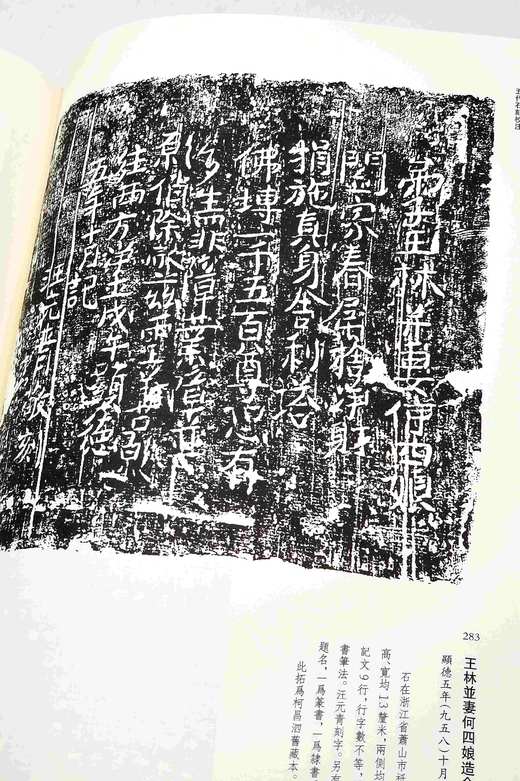 五代石刻校注
弟子王林并妻何四娘
闔宗眷屬捨淨財
捐施真身舍利塔
佛塼一千五百尊恐有
多生罪障業障並
願消除承茲
往西方淨土戊午顯德
五年十月記
汪元青刻
283
王林並妻何四娘造
顯德五年(九五八)十月
石在浙江省蕭山市祇
高、寬均13釐米,兩側均
記文9行,行字數不等,
書筆法。汪元青刻字。另有
題名,一爲篆書,一爲隸書
此拓爲柯昌泗舊藏本。